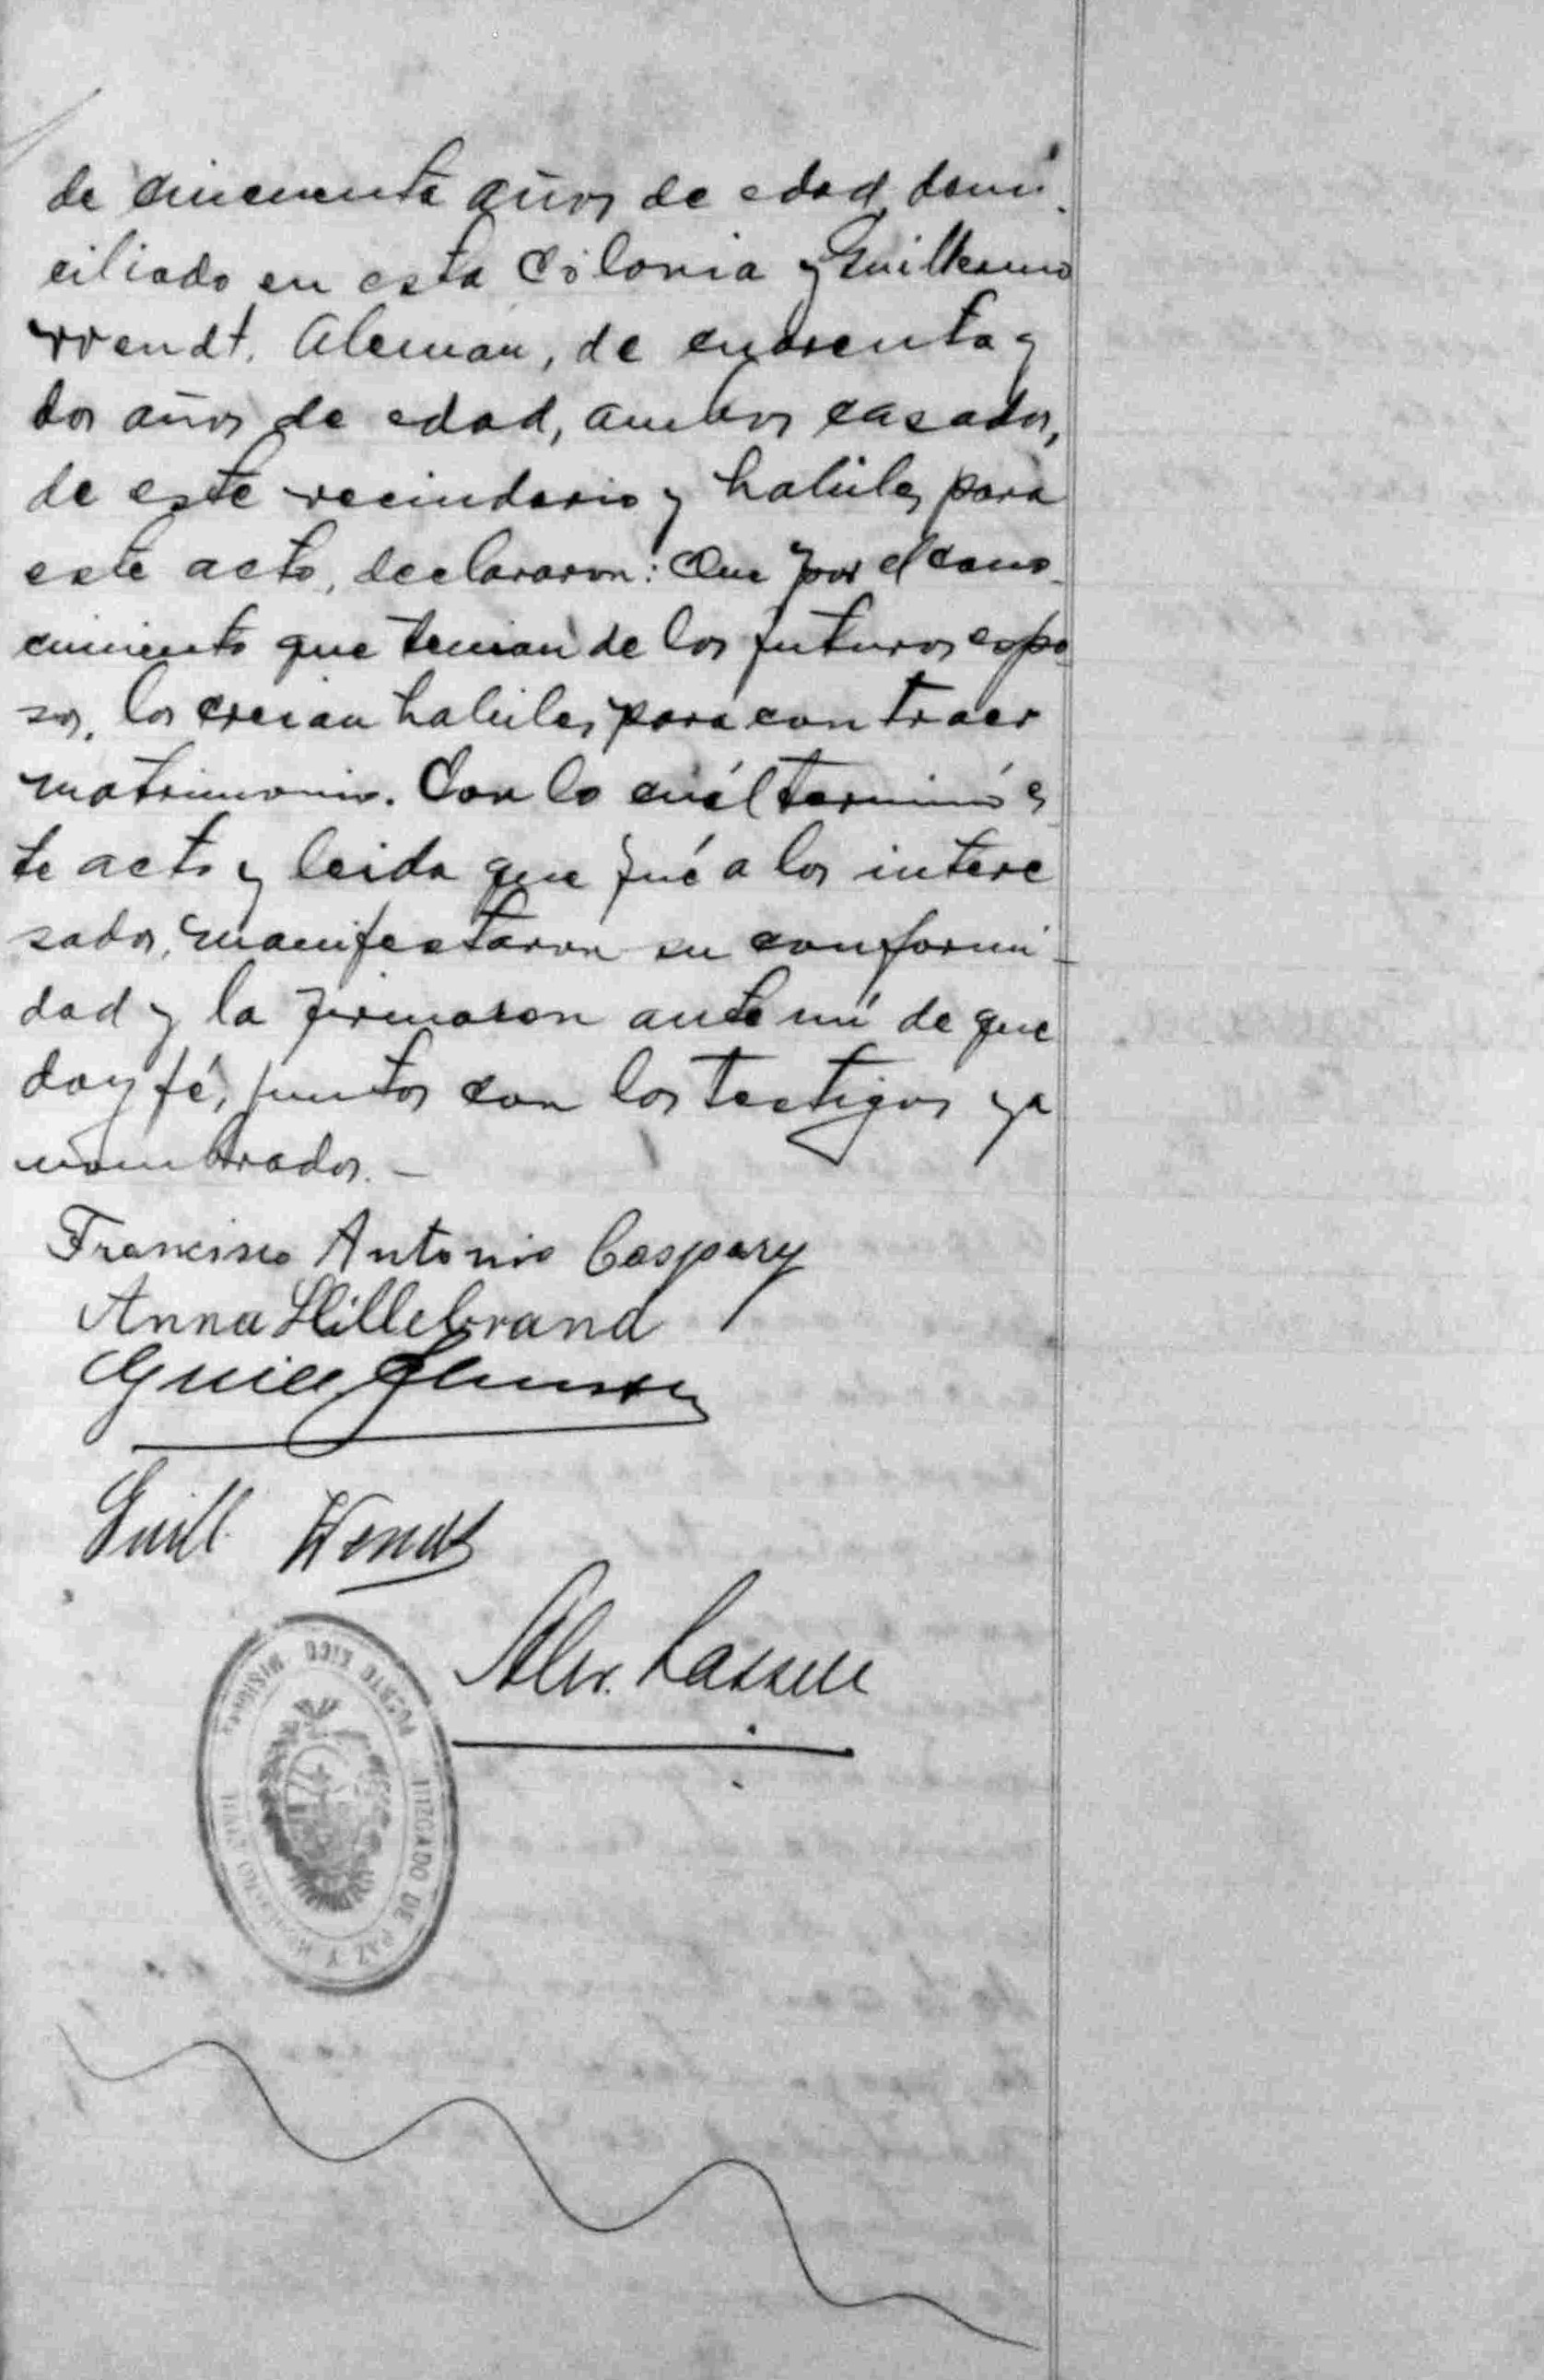 de cincuenta años de edad, domi-
ciliado en esta Colonia y Guillermo
Wendt, Aleman, de cuarenta y
dos años de edad, ambos casados,
de este vecindario y habiles para
este acto, declararon: Que por el cono-
cimiento que tenian de los futuros espo-
sos, los creian habiles para contraer
matrimonio. Con lo cuál terminó es-
te acto y leida que fué a los intere
sados, manifestaron su conformi-
dad y la firmaron ante mi de que
doy fé, juntos con los testigos ya
nombrados.—
Francisco Antonio Caspary
Anna Hillebrand
Guill
Guill. Wendt
Alex.
JUZGADO DE PAZ Y
PUERTO RICO MISIONES